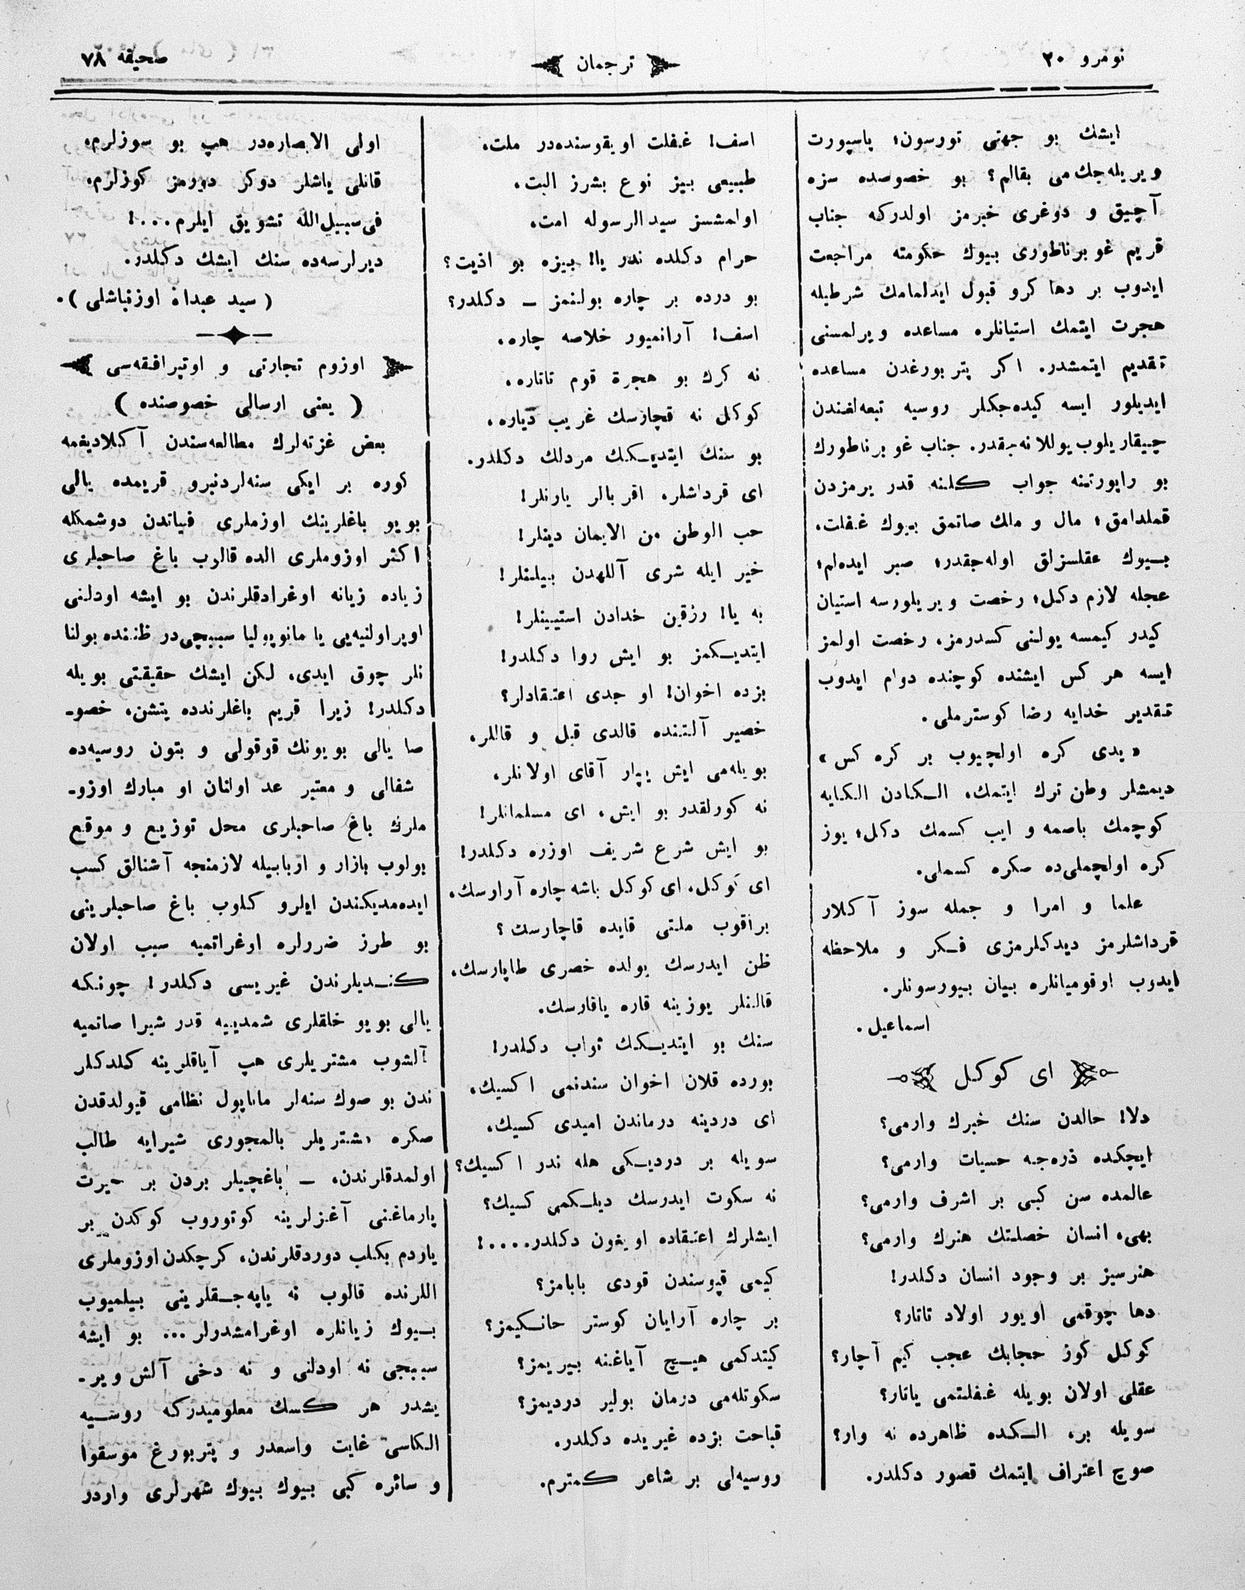 نومرو ٢٠
ترجمان
صحیفه ٧٨
ایشك بو جهتی تورسون؛ پاسپورت
ویریله‌جك‌می بقالم؟ بو خصوصده سزه
آچیق و دوغری خبرمز اولدركه جناب
قریم غوبرناطوری بیوك حكومته مراجعت
ایدوب بر دها كرو قبول ایدلمامك شرطیله
هجرت ایتمك استیانلره مساعده ویرلمسنی
تقدیم ایتمشدر. اكر پتربورغدن مساعده
ایدیلور ایسه كیده‌جكلر روسیه تبعه‌لغندن
چیقاریلوب یوللانه‌جقدر. جناب غوبرناطورك
بو راپورتنه جواب كلنه قدر یرمزدن
قملدامق؛ مال و مالك صاتمق بیوك غفلت،
بیوك عقلسزلق اوله‌جقدر؛ صبر ایده‌لم؛
عجله لازم دكل؛ رخصت ویریلورسه استیان
كیدر كیمسه یولنی كسدرمز، رخصت اولمز
ایسه هر كس ایشنده كوچنده دوام ایدوب
تقدیر خدایه رضا كوسترملی.
« یدی كره اولچیوب بر كره كس »
دیمشلر وطن ترك ایتمك، الكادن الكایه
كوچمك باصمه و ایب كسمك دكل؛ یوز
كره اولچملی‌ده صكره كسملی.
علما و امرا و جمله سوز آكلار
قرداشلرمز دیدكلرمزی فكر و ملاحظه
ایدوب اوقومیانلره بیان بیورسونلر.
اسماعیل.
ای كوكل
دلا! حالدن سنك خبرك وارمی؟
ایچكده ذره‌جه حسیات وارمی؟
عالمده سن كبی بر اشرف وارمی؟
بهی، انسان خصلتك هنرك وارمی؟
هنرسیز بر وجود انسان دكلدر!
دها چوقمی اویور اولاد تاتار؟
كوكل كوز حجابك عجب كیم آچار؟
عقلی اولان بویله غفلتمی یاتار؟
سویله بر، الكده ظاهرده نه وار؟
صوچ اعتراف ایتمك قصور دكلدر.
اسف! غفلت اویقوسنده‌در ملت،
طبیعی بیز نوع بشرز البت،
اولمشسز سیدالرسوله امت،
حرام دكلده ندر یا! بیزه بو اذیت؟
بو درده بر چاره بولنمز ـ دكلدر؟
اسف! آرانمیور خلاصه چاره،
نه كرك بو هجرة قوم تاتاره،
كوكل نه قچارسك غریب دیاره،
بو سنك ایتدیكك مردلك دكلدر.
ای قرداشلر، اقربالر یارنلر!
حب الوطن من الایمان دینلر!
خیر ایله شری آللهدن بیلنلر!
به یا! رزقین خدادن استیینلر!
ایتدیكمز بو ایش روا دكلدر!
بزده اخوان! او جدی اعتقادلر؟
خصیر آلتنده قالدی قیل و قاللر،
بویله‌می ایش یپار آقای اولانلر،
نه كورلقدر بو ایش، ای مسلمانلر!
بو ایش شرع شریف اوزره دكلدر!
ای كوكل، ای كوكل باشه چاره آرارسك،
براقوب ملتی قایده قاچارسك؟
ظن ایدرسك یولده خضری طاپارسك،
قالنلر یوزینه قاره یاقارسك.
سنك بو ایتدیكك ثواب دكلدر!
بورده قلان اخوان سندنمی اكسیك،
ای دردینه درماندن امیدی كسیك،
سویله بر دردیكی هله ندر اكسیك؟
نه سكوت ایدرسك دیلكمی كسیك؟
ایشلرك اعتقاده اویغون دكلدر....!
كیمی قپوسندن قودی بابامز؟
بر چاره آرایان كوستر حانكیمز؟
كیتدكمی هیچ آیاغنه بیریمز؟
سكوتله‌می درمان بولیر دردیمز؟
قباحت بزده غیریده دكلدر.
روسیه‌لی بر شاعر كمترم.
اولی الابصاره‌در هپ بو سوزلرم،
قانلی یاشلر دوكر دورمز كوزلرم،
فی‌سبیل‌الله تشویق ایلرم....!
دیرلرسه‌ده سنك ایشك دكلدر.
( سید عبدالله اوزنباشلی ).
اوزوم تجارتی و اوتپراقفه‌سی
( یعنی ارسالی خصوصنده )
بعض غزته‌لرك مطالعه‌سندن آكلادیغمه
كوره بر ایكی سنه‌لردنبرو قریمده یالی
بویو باغلرینك اوزملری فیاتدن دوشمكله
اكثر اوزوملری الده قالوب باغ صاحبلری
زیاده زیانه اوغرادقلرندن بو ایشه اودلنی
اوپراولنیه‌یی یا مانوپولیا سببیچی‌در ظننده بولنا
نلر چوق ایدی، لكن ایشك حقیقتی بویله
دكلدر! زیرا قریم باغلرندده یتشن، خصوـ
صا یالی بویونك قوقولی و بتون روسیه‌ده
شفالی و معتبر عد اولنان او مبارك اوزوـ
ملرك باغ صاحبلری محل توزیع و موقع
بولوب بازار و اربابیله لازمنجه آشنالق كسب
ایده‌مدیكندن ایلرو كلوب باغ صاحبلرینی
بو طرز ضررلره اوغراتمیه سبب اولان
كندیلرندن غیریسی دكلدر! چونكه
یالی بویو خلقلری شمدییه قدر شیرا صاتمیه
آلشوب مشتریلری هپ آیاقلرینه كلدكلر
ندن بو صوك سنه‌لر ماناپول نظامی قیولدقدن
صكره مشتریلر بالمجوری شیرایه طالب
اولمدقلرندن، ـ باغچیلر بردن بر حیرت
پارماغنی آغزلرینه كوتوروب كوكدن بر
یاردم بكلب دوردقلرندن، كرچكدن اوزوملری
اللرنده قالوب نه یاپه‌جقلرینی بیلمیوب
بیوك زیانلره اوغرامشدرلر... بو ایشه
سببچی نه اودلنی و نه دخی آلش ویرـ
یشدر هر كسك معلومیدركه روسیه
الكاسی غایت واسعدر و پتربورغ موسقوا
و سائره كبی بیوك بیوك شهرلری واردر